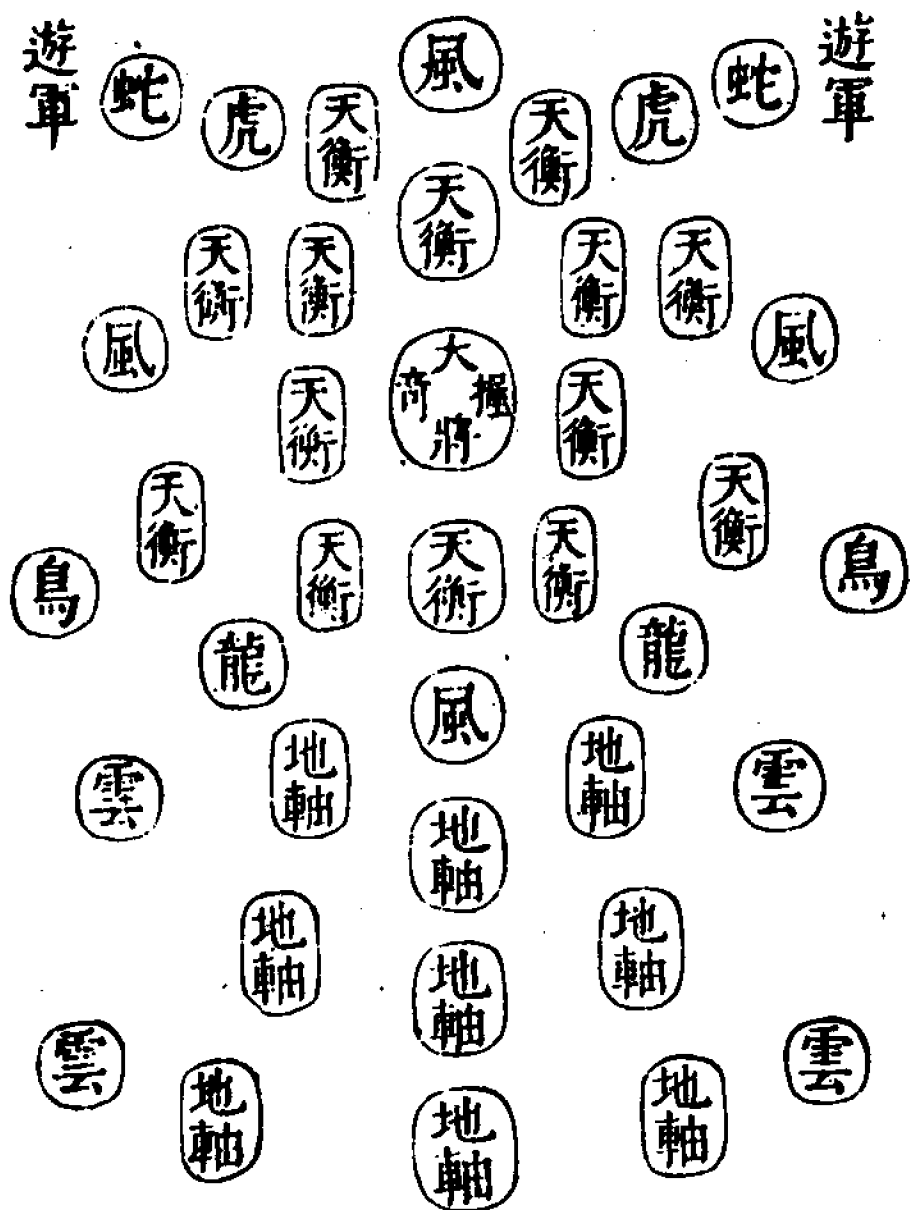 遊軍 蛇 虎 天衡 風 天衡 虎 蛇 遊軍
天衡 天衡 天衡 天衡 天衡
風 大將握奇 風
天衡 天衡
天衡 天衡
鳥 天衡 天衡 天衡 鳥
龍 龍
風
雲 地軸 地軸 雲
地軸
地軸 地軸
地軸
雲 雲
地軸 地軸 地軸